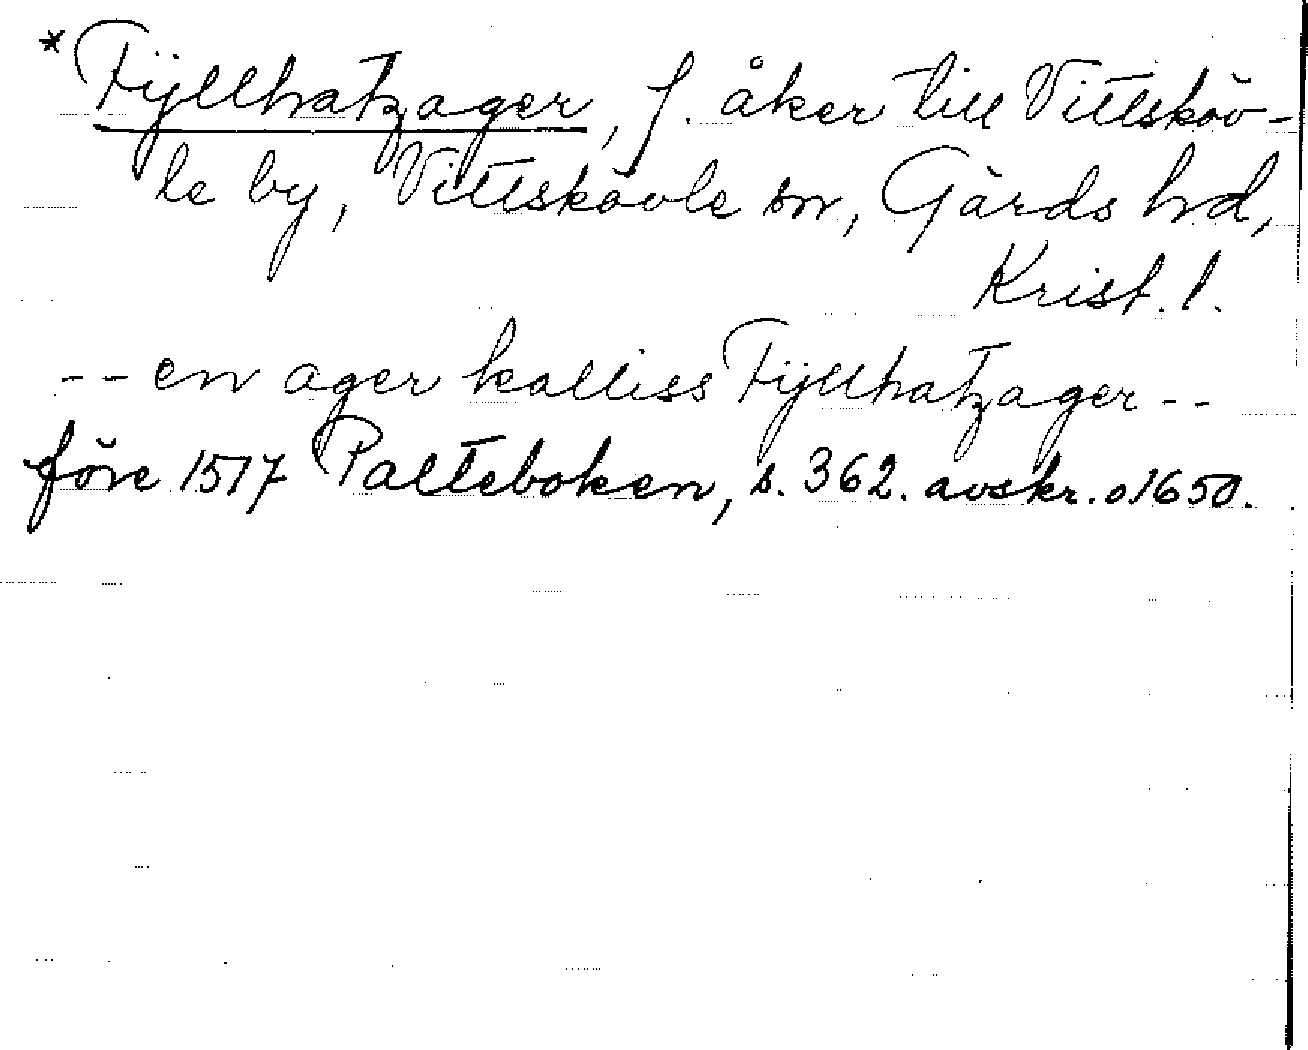 *Fÿllhatzager, f. åker till Vittsköv-
le by, Vittskövle sn, Gärds hd,
Krist. l.
-- en ager kalliss Fÿllhatzager --
före 1517 Palteboken, s. 362. avskr. o. 1650.